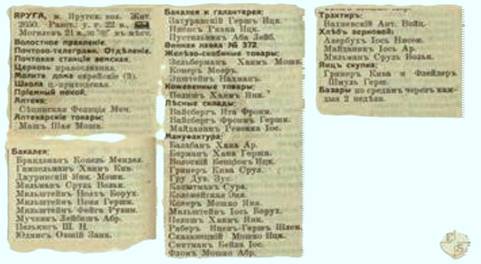 ЯРУГА, м. Ярутск. вол. Жит.
2050. Разст. у. г. 22 в.,
Могилевъ 21 в.,
Волостное правленіе.
Почтово-телеграфн. Отдѣленіе.
Почтовая станція земская.
Церковь православная.
Молитв. дома еврейскіе (3).
Школа ц.-приходская.
Пріемный покой.
Аптека:
Сѣцинская Феодція Меч.
Аптекарскіе товары:
Машъ Шая Мошк.
Бакалея:
Брандманъ Копель Мендел.
Гинпельманъ Хаимъ Кив.
Дауринскій Ицк. Мошк.
Мильманъ Сруль Вольк.
Мильштейнъ Волъ Борух.
Мильштейнъ Пеня Герш.
Мильштейнъ Фейга Рувин.
Мучникъ Лейбишъ Абр.
Пелькисъ Ш. Н.
Юднисъ Овшій Занв.
Бакалея и галантерея:
Затуранскій Гершъ Ицк.
Низенъ Ривка Ицк.
Пустильникъ Аба Лейб.
Винная лавка № 372
Желѣзо-скобяные товары:
Зильберманъ Хаимъ Мошк.
Коперъ Моверъ.
Эпштейнъ Нахманъ.
Кожевенные товары:
Пелишъ Хаимъ Янк.
Лѣсные склады:
Вайсбергъ Ита Фроим.
Вайсбергъ Фроимъ Герш.
Майданикъ Ревекка Іос.
Мануфактура:
Балабанъ Хана Ар.
Берманъ Хана Герш.
Вольскій Бенціонъ Ицк.
Гринеръ Кива Срул.
Гру Дув. Зус.
Капштманъ Сура.
Коломейская Эня.
Коперъ Мошко Янк.
Мильштейнъ Іосъ Борух.
Пелишъ Хаимъ Янк.
Риберъ Ицекъ-Гершъ Шлем.
Сказинецкій Мошко Ицк.
Снитманъ Бейла Іос.
Фломъ Мошко Абр.
Трактиръ:
Валиевскій Ант. Войц.
Хлѣбъ зерновой:
Авербухъ Іосъ Нисон.
Майданикъ Іос. Ар.
Мильманъ Сруль Вольк.
Яицъ скупка:
Гринеръ Кива и Флейдеръ
Шмуль Герш.
Базары по средамъ черезъ каж-
дыя 2 недѣли.